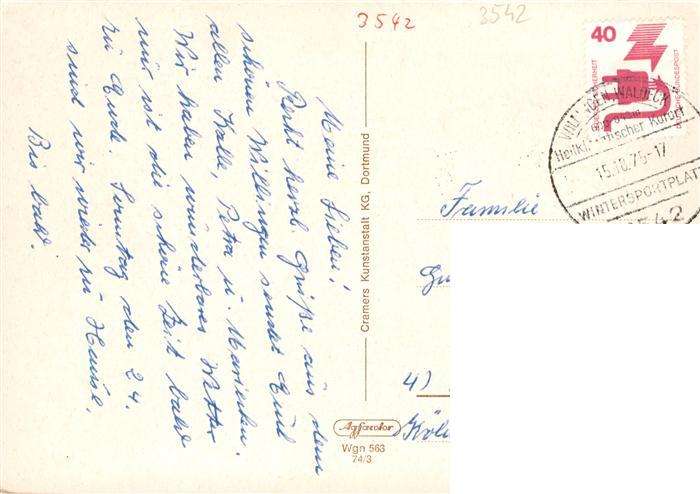 3542
3542
40
DEUTSCHE BUNDESPOST
WILLINGEN, WALDECK
Heilklimatischer Kurort
15.10.75-17
WINTERSPORTPLATZ
3542
Meine Lieben!
Recht herzl. Grüße aus dem
schönen Willingen sendet Euch
allen Kalle, Petra u. Marieehen.
Wir haben wunderbares Wetter
nur ist die schöne Zeit bald
zu Ende. Sonntag den 24.
sind wir wieder zu Hause.
Bis bald.
Cramers Kunstanstalt KG, Dortmund
Agfacolor
Wgn 563
74/3
Familie
Gu
4)
Köl